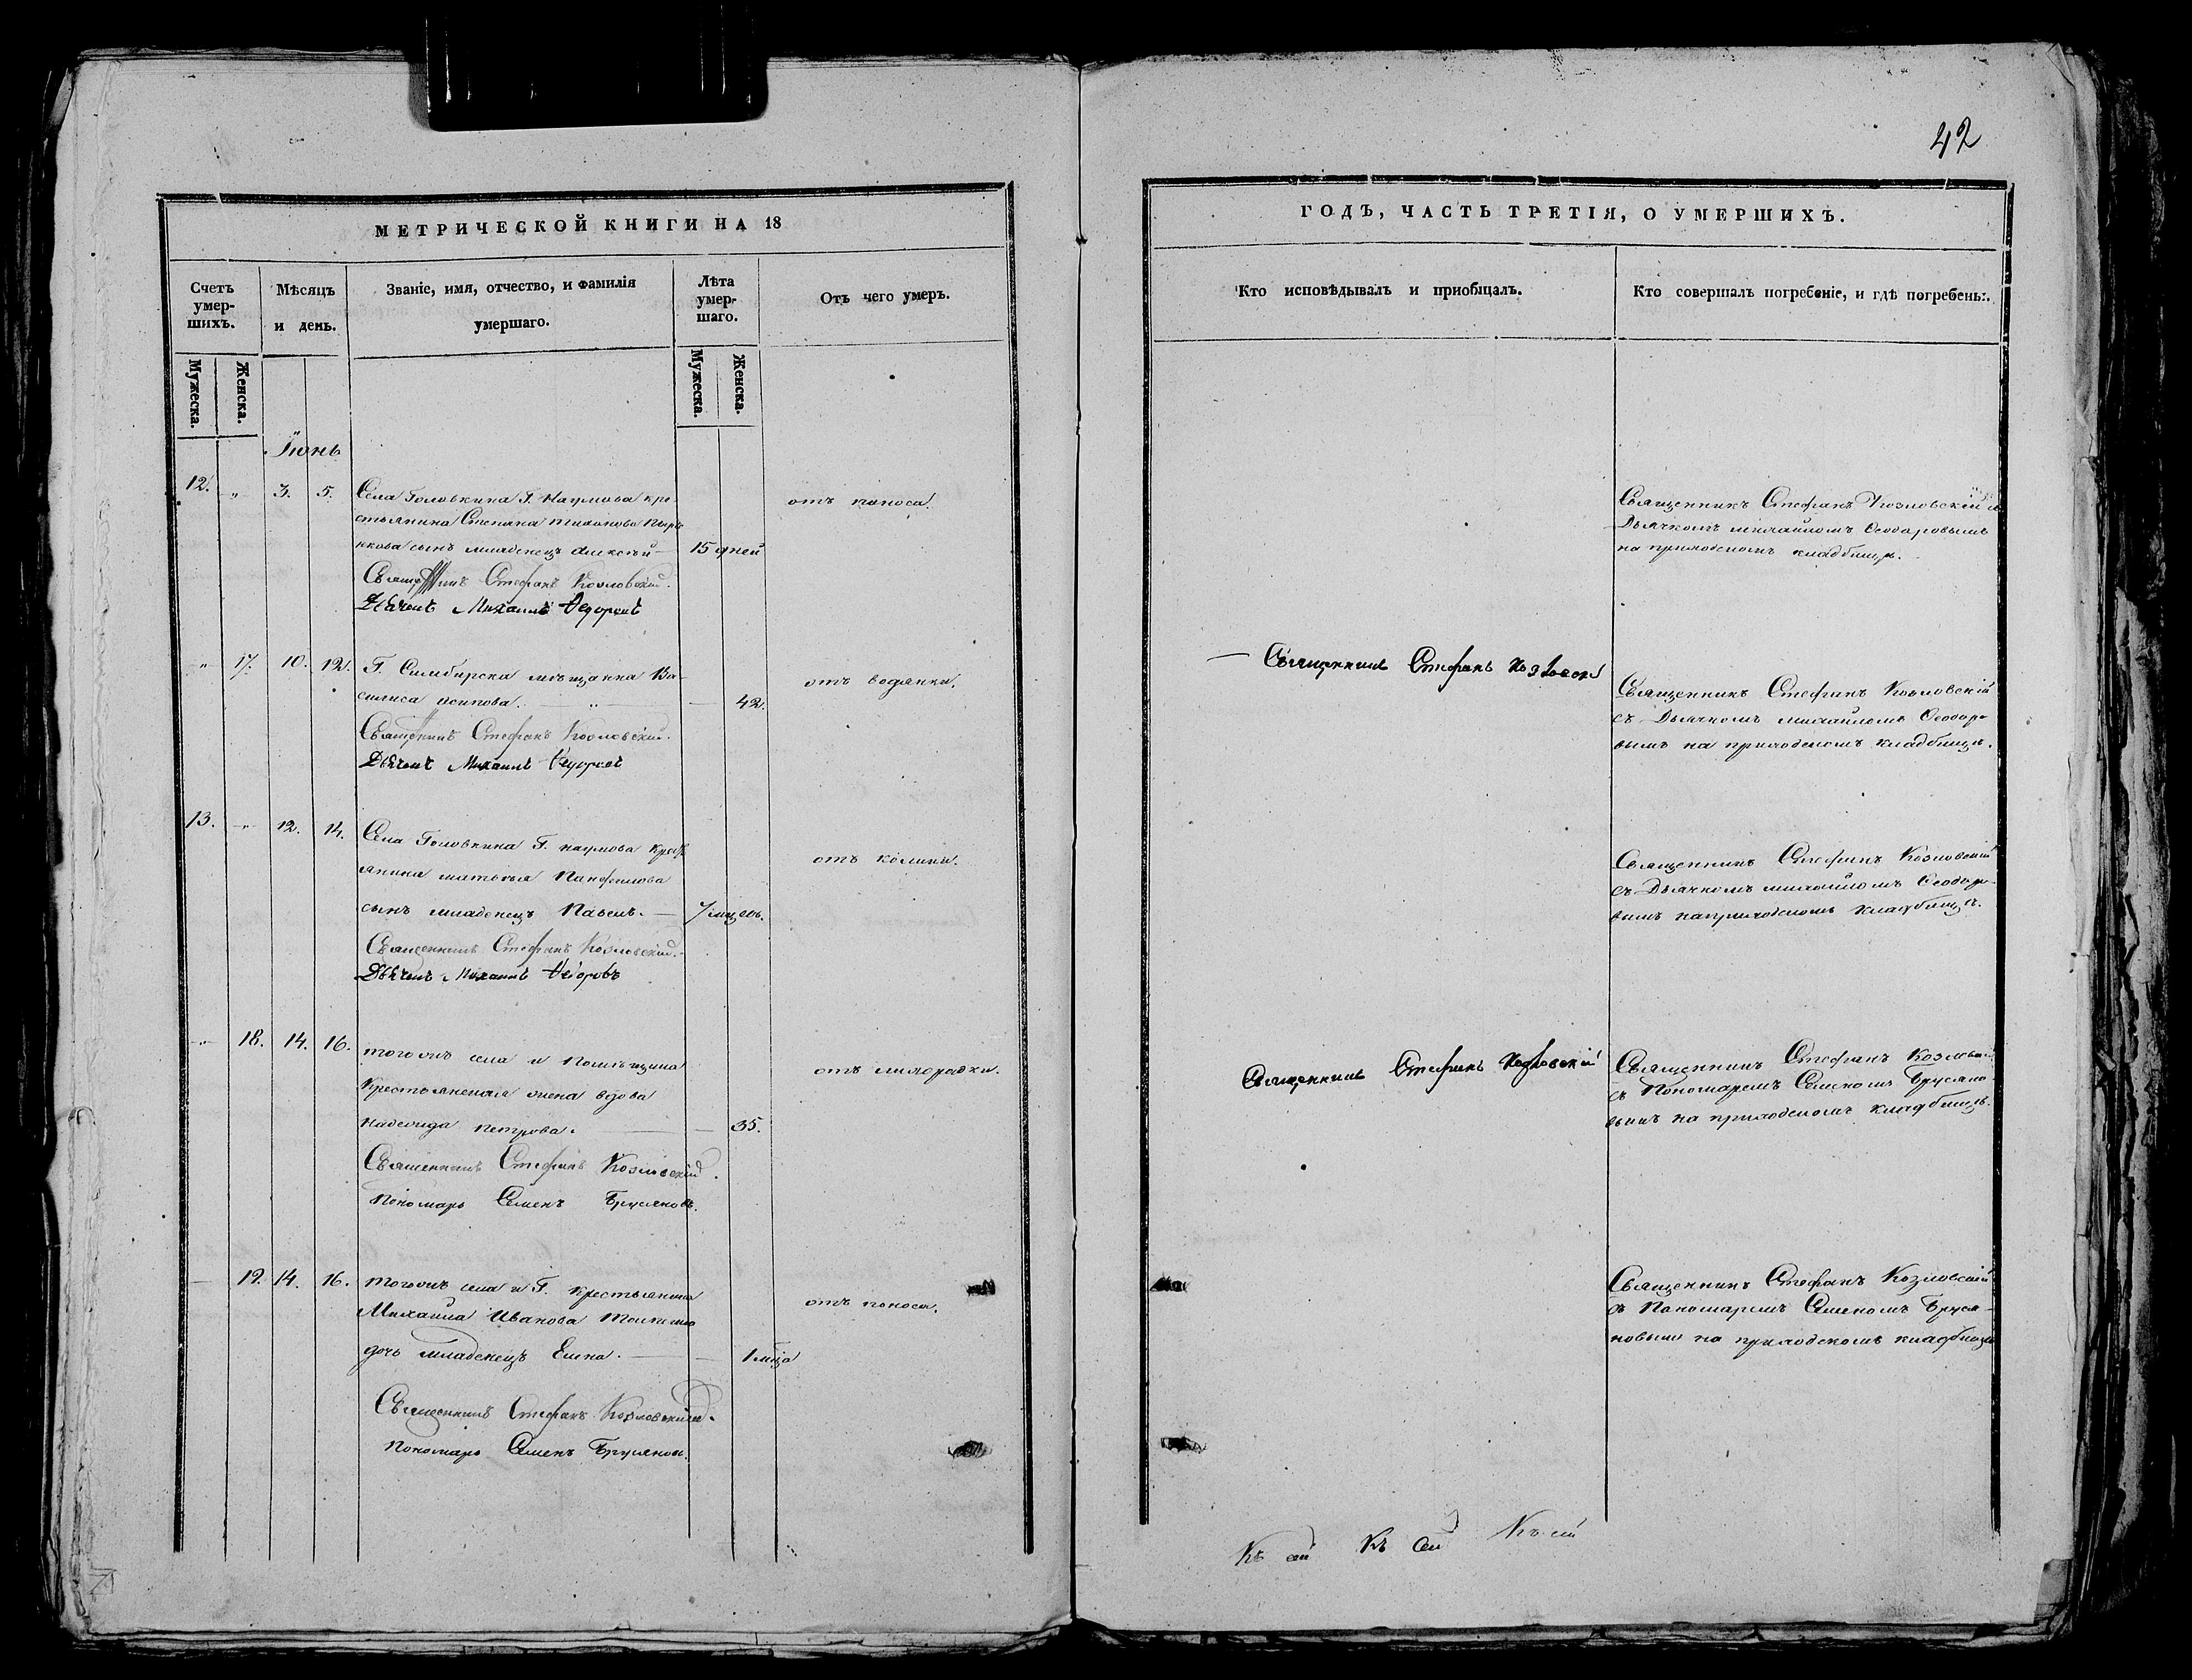 42
МЕТРИЧЕСКОЙ КНИГИ НА 18
Счетъ умер-шихъ.
Мѣсяцъ и день.
Званіе, имя, отчество, и фамилія умершаго.
Лѣта умер-шаго.
Отъ чего умеръ.
Мужеска.
Женска.
Мужеска.
Женска.
Іюнь
12. „ 3. 5. Села Головкина Г. Наумова кре-
отъ поноса.
стьянина Степана Тихонова
нкова сынъ младенецъ Алексѣй — 15 дней
Священникъ Стефанъ Козловскій.
Дьячекъ Михаилъ Федоровъ
„ 17. 10. 12. Г. Симбирска мѣщанка Ва-
отъ водянки.
силиса Осипова. — „ — 42.
Священникъ Стефанъ Козловскій.
Дьячекъ Михаилъ Федоровъ
13. „ 12. 14. Села Головкина Г. Наумова крест
отъ
янина Матвѣя Панфилова
сынъ младенецъ Павелъ. — 7 мцовъ.
Священникъ Стефанъ Козловскій.
Дьячекъ Михаилъ Федоровъ
„ 18. 14. 16. тогожъ села и Помѣщика
отъ лихорадки.
Крестьянская жена вдова
Надежда Петрова. — 35.
Священникъ Стефанъ Козловскій.
Пономарь Семенъ Брусяновъ.
— 19. 14. 16. тогожъ села и Г. крестьянина
отъ поноса.
Михаила Иванова
дочь младенецъ Елена. — 1 мца
Священникъ Стефанъ Козловскій.
Пономарь Семенъ Брусяновъ.
ГОДЪ, ЧАСТЬ ТРЕТІЯ, О УМЕРШИХЪ.
Кто исповѣдывалъ и приобщалъ.
Кто совершалъ погребеніе, и гдѣ погребены.
Священникъ Стефанъ Козловскій съ
Дьячкомъ Михайломъ Ѳеодоровымъ
на приходскомъ кладбищѣ.
— Священникъ Стефанъ Козловскій
Священникъ Стефанъ Козловскій
съ Дьячкомъ Михайломъ Ѳеодоро-
вымъ на приходскомъ кладбищѣ.
Священникъ Стефанъ Козловскій
съ Дьячкомъ Михайломъ Ѳеодоро-
вымъ на приходскомъ кладбищѣ.
Священникъ Стефанъ Козловскій
Священникъ Стефанъ Козловскій
съ Пономаремъ Семеномъ Брусяно-
вымъ на приходскомъ кладбищѣ.
Священникъ Стефанъ Козловскій
съ Пономаремъ Семеномъ Бруся-
новымъ на приходскомъ кладбищѣ